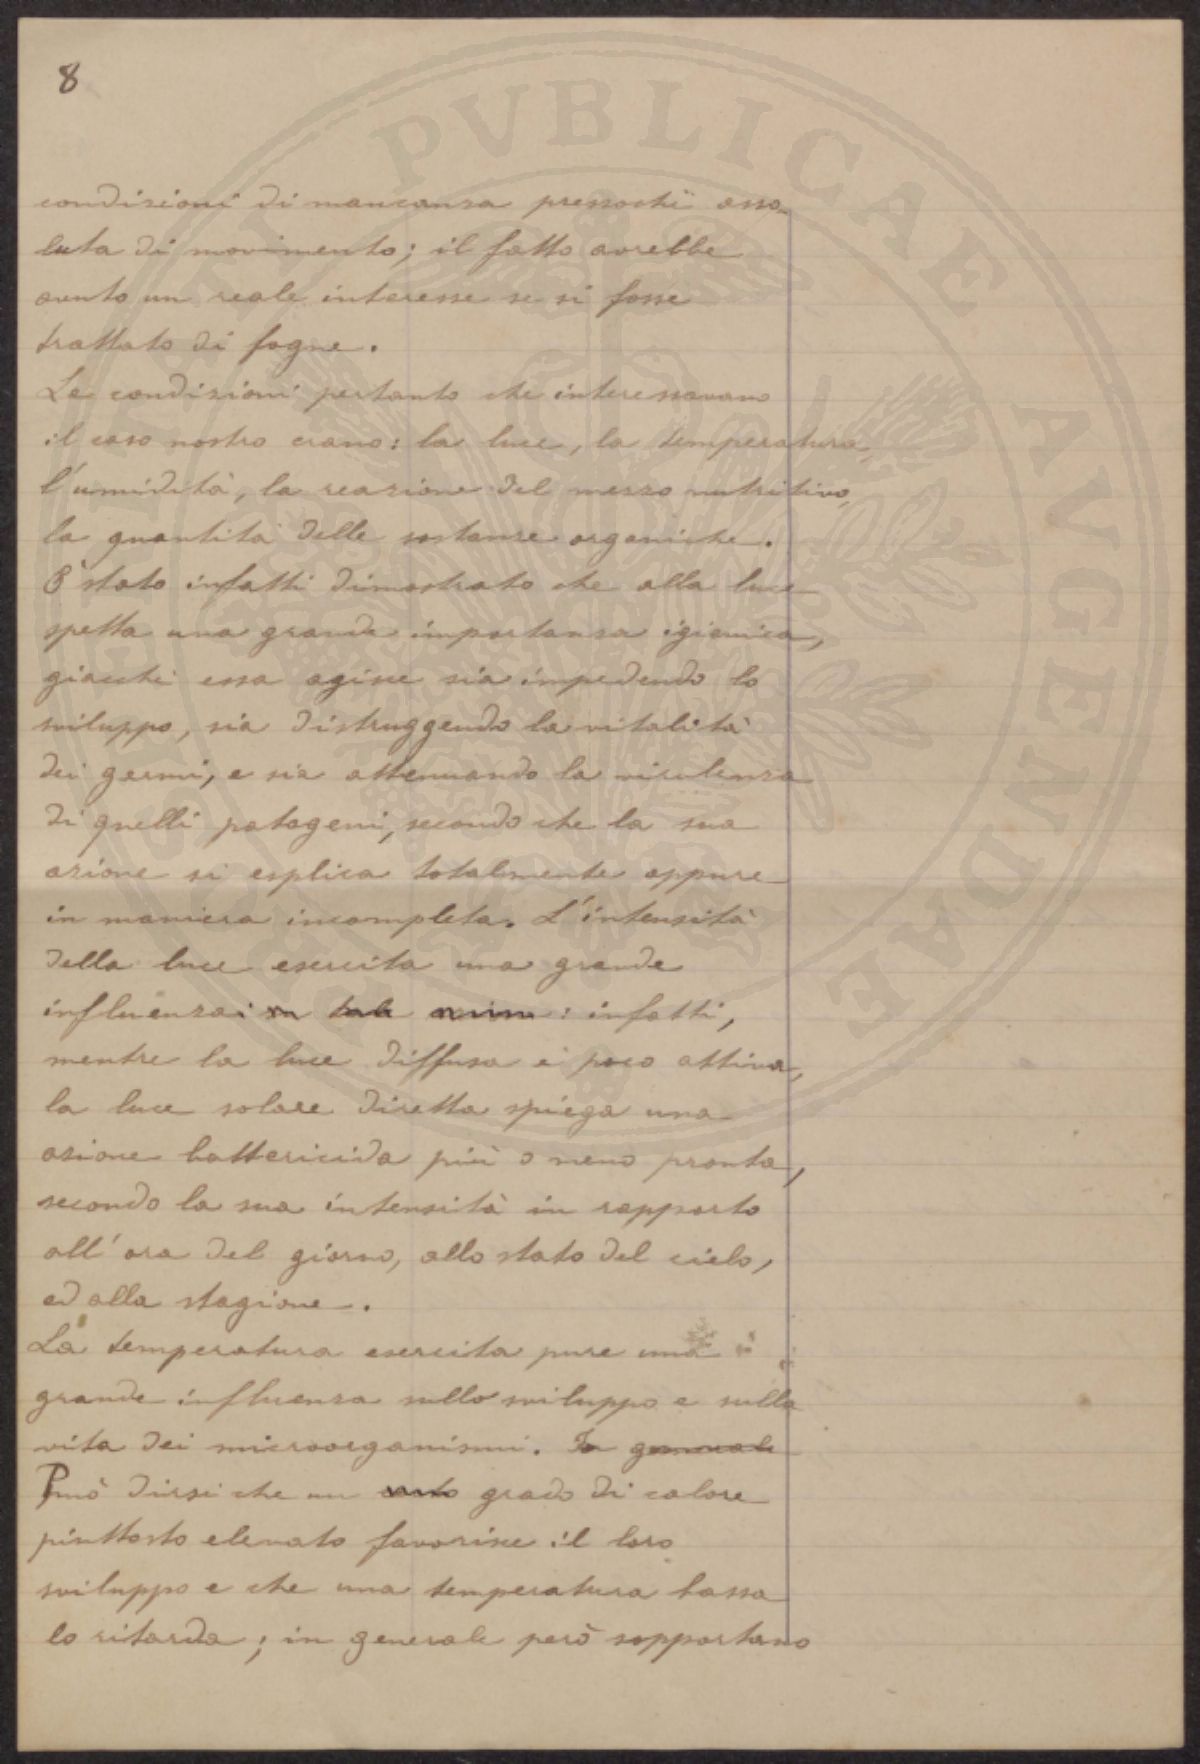 8
condizioni di mancanza pressochè asso-
luta di movimento; il fatto avrebbe
avuto un reale interesse se si fosse
trattato di fogne.
Le condizioni pertanto che interessavano
il caso nostro erano: la luce, la temperatura,
l'umidità, la reazione del mezzo nutritivo,
la quantità delle sostanze organiche.
È stato infatti dimostrato che alla luce
spetta una grande importanza igienica,
giacchè essa agisce sia impedendo lo
sviluppo, sia distruggendo la vitalità
dei germi, e sia attenuando la virulenza
di quelli patogeni, secondo che la sua
azione si esplica totalmente oppure
in maniera incompleta. L'intensità
della luce esercita una grande
influenza: infatti,
mentre la luce diffusa è poco attiva,
la luce solare diretta spiega una
azione battericida più o meno pronta,
secondo la sua intensità in rapporto
all'ora del giorno, allo stato del cielo,
ed alla stagione.
La temperatura esercita pure una
grande influenza sullo sviluppo e sulla
vita dei microorganismi. In generale
Può dirsi che un grado di calore
piuttosto elevato favorisce il loro
sviluppo e che una temperatura bassa
lo ritarda; in generale però sopportano
PVBLICAE AVGENDAE